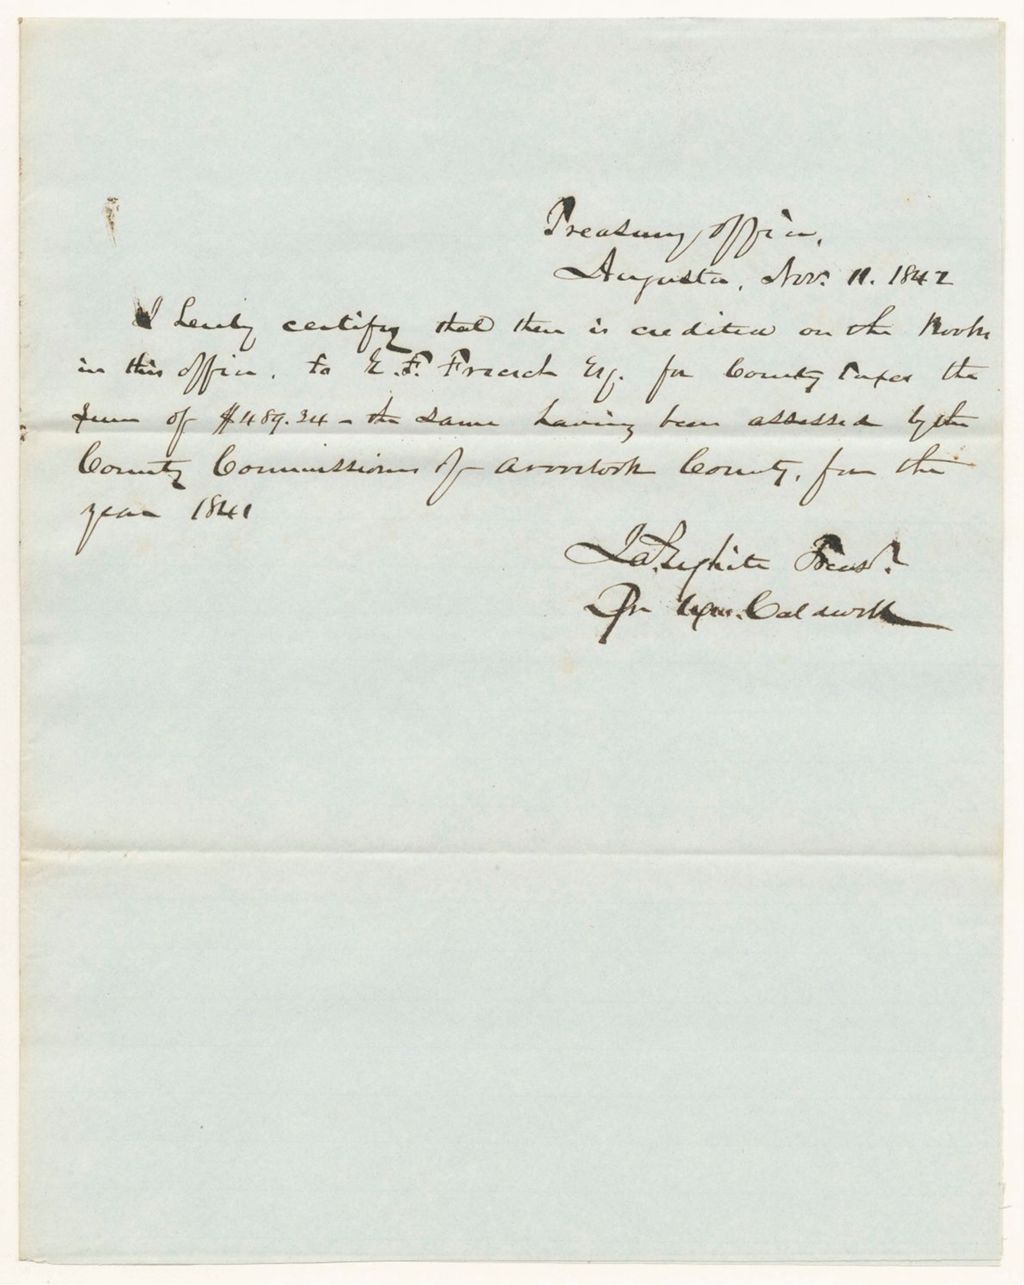 Treasury Office,
Augusta, Nov. 11. 1842
I hereby certify that there is credited on the Books
in this office, to E. F. French Esq. for County Taxes the
sum of $489.34 - the same having been assessed by the
County Commissioners of Aroostook County, for the
year 1841
Treasr.
Pr Wm. Caldwell